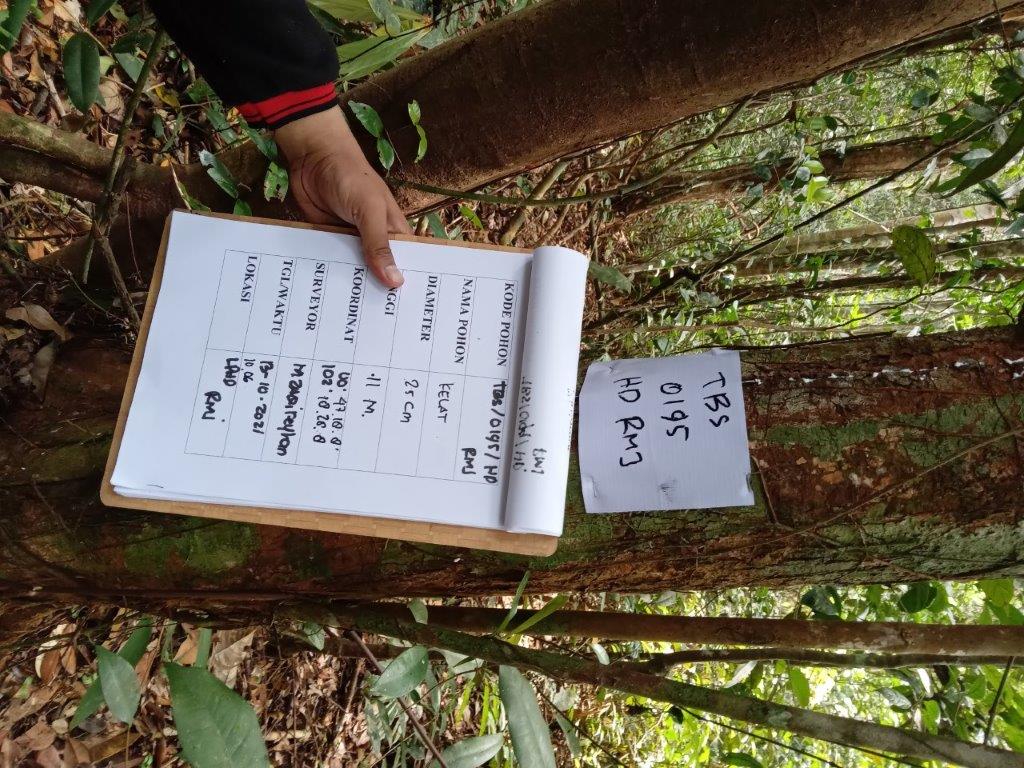 TBS
0195
HD RMJ
KODE POHON TBS/0195/HD
RMJ
NAMA POHON KELAT
DIAMETER 25 Cm
NGGI 11 M.
KOORDINAT 00° 47.18.8"
102° 18.28.8
SURVEYOR
TGL/WAKTU 13-10-2021
10.06
LOKASI LPHD
RMJ